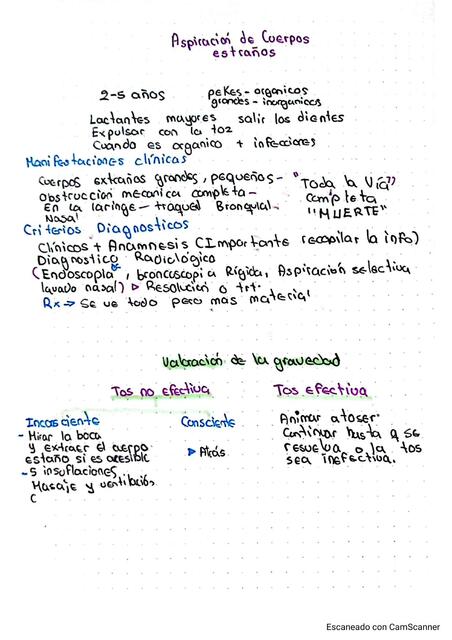 Aspiración de Cuerpos
estraños
2-5 años
peKes - organicos
grandes - inorganicos
Lactantes mayores salir los dientes
Expulsar con la toz
Cuando es organico + infecciones
Manifestaciones clínicas
Cuerpos extraños grandes, pequeños-
Obstrucción mecanica completa-
En la laringe - traquea Bronquial-
Nasal
"Toda la Vía"
completa
"MUERTE"
Criterios Diagnosticos
Clínicos + Anamnesis (Importante recopilar la info)
Diagnostico Radiológico
(Endoscopia, broncoscopia Rígida, Aspiración selectiva
lavado nasal) Resolución o trt.
Rx → Se ve todo pero mas material
Valoración de la gravedad
Tos no efectiva
Tos efectiva
Incosciente
- Mirar la boca
y extraer el cuerpo
estaño si es accesible
- 5 insuflaciones
Masaje y ventilación
C
Consciente
Atrás
Animar a toser.
Continuar hasta q se
resuelva o la tos
sea inefectiva.
Escaneado con CamScanner